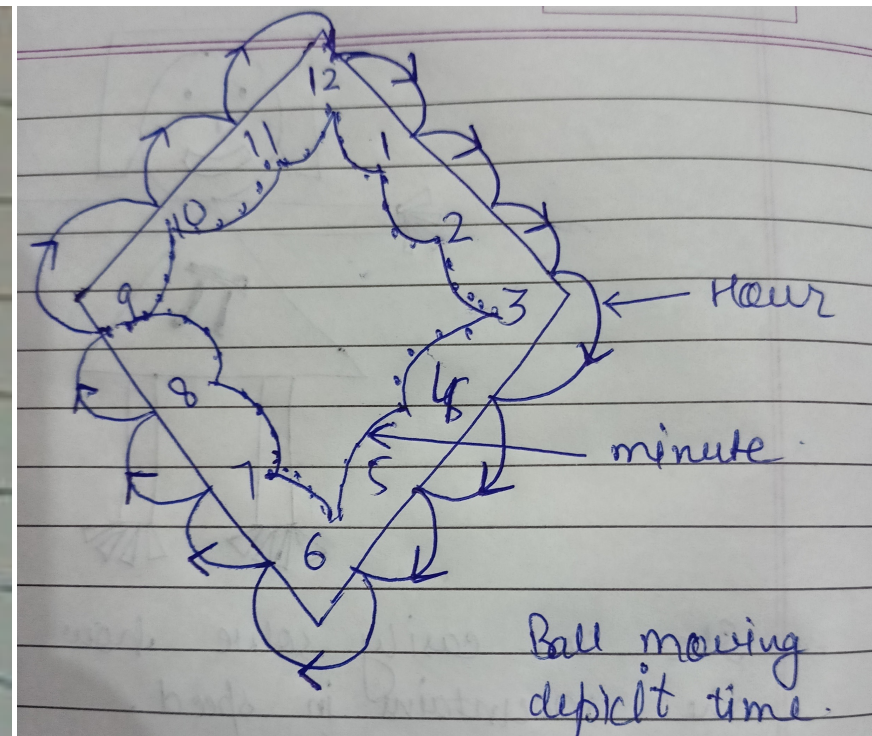 12
11
1
10
2
9
3
Hour
8
4
minute.
7
5
6
Ball moving
depiclt time.